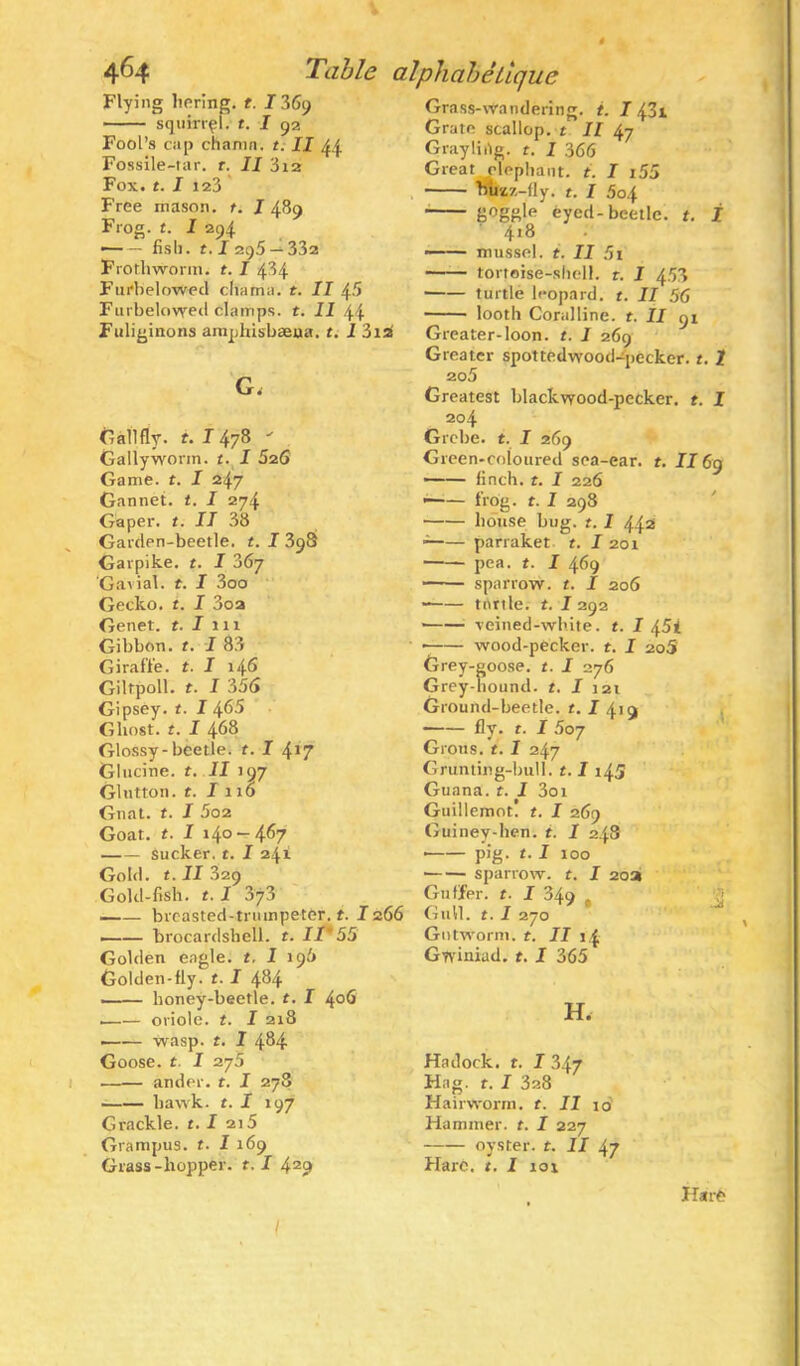 464 Table alphabétique
Flying hering. t. I 369
—— squirrel. t. I 92
Fool's cap chama. t. II 44
Fossile-tar. t. II 312
Fox. t. I 123
Free mason. t. I 489
Frog. t. I 294
—— fish. t. I 295–332
Frothworm. t. I 434
Furbelowed chama. t. II 45
Furbelowed clamps. t. II 44
Fuliginons amphisbæna. t. I 312
G.
Gallfly. t. I 478
Gallyworm. t. I 526
Game. t. I 247
Gannet. t. I 274
Gaper. t. II 38
Garden-beetle. t. I 398
Garpike. t. I 367
Gavial. t. I 300
Gecko. t. I 302
Genet. t. I 111
Gibbon. t. I 83
Giraffe. t. I 146
Giltpoll. t. I 356
Gipsey. t. I 465
Ghost. t. I 468
Glossy-beetle. t. I 417
Glucine. t. II 197
Glutton. t. I 116
Gnat. t. I 502
Goat. t. I 140–467
—— sucker. t. I 241
Gold. t. II 329
Gold-fish. t. I 373
—— breasted-trumpeter. t. I 266
—— brocardshell. t. II 55
Golden eagle. t. I 196
Golden-fly. t. I 484
—— honey-beetle. t. I 406
—— oriole. t. I 218
—— wasp. t. I 484
Goose. t. I 275
—— ander. t. I 278
—— hawk. t. I 197
Grackle. t. I 215
Grampus. t. I 169
Grass-hopper. t. I 429
Grass-wandering. t. I 431
Grate scallop. t. II 47
Grayling. t. I 366
Great elephant. t. I 155
—— buzz-fly. t. I 504
—— goggle eyed-beetle. t. I
418
—— mussel. t. II 51
—— tortoise-shell. t. I 453
—— turtle leopard. t. II 56
—— tooth Coralline. t. II 91
Greater-loon. t. I 269
Greater spottedwood-pecker. t. I
205
Greatest blackwood-pecker. t. I
204
Grebe. t. I 269
Green-coloured sea-ear. t. II 69
—— finch. t. I 226
—— frog. t. I 298
—— house bug. t. I 442
—— parraket. t. I 201
—— pea. t. I 469
—— sparrow. t. I 206
—— turtle. t. I 292
—— veined-white. t. I 451
—— wood-pecker. t. I 205
Grey-goose. t. I 276
Grey-hound. t. I 121
Ground-beetle. t. I 419
—— fly. t. I 507
Grous. t. I 247
Grunting-bull. t. I 145
Guana. t. I 301
Guillemot. t. I 269
Guiney-hen. t. I 248
—— pig. t. I 100
—— sparrow. t. I 202
Guffer. t. I 349
Gull. t. I 270
Gutworm. t. II 14
Gwiniad. t. I 365
H.
Hadock. t. I 347
Hag. t. I 328
Hairworm. t. II 10
Hammer. t. I 227
—— oyster. t. II 47
Hare. t. I 101
Hare